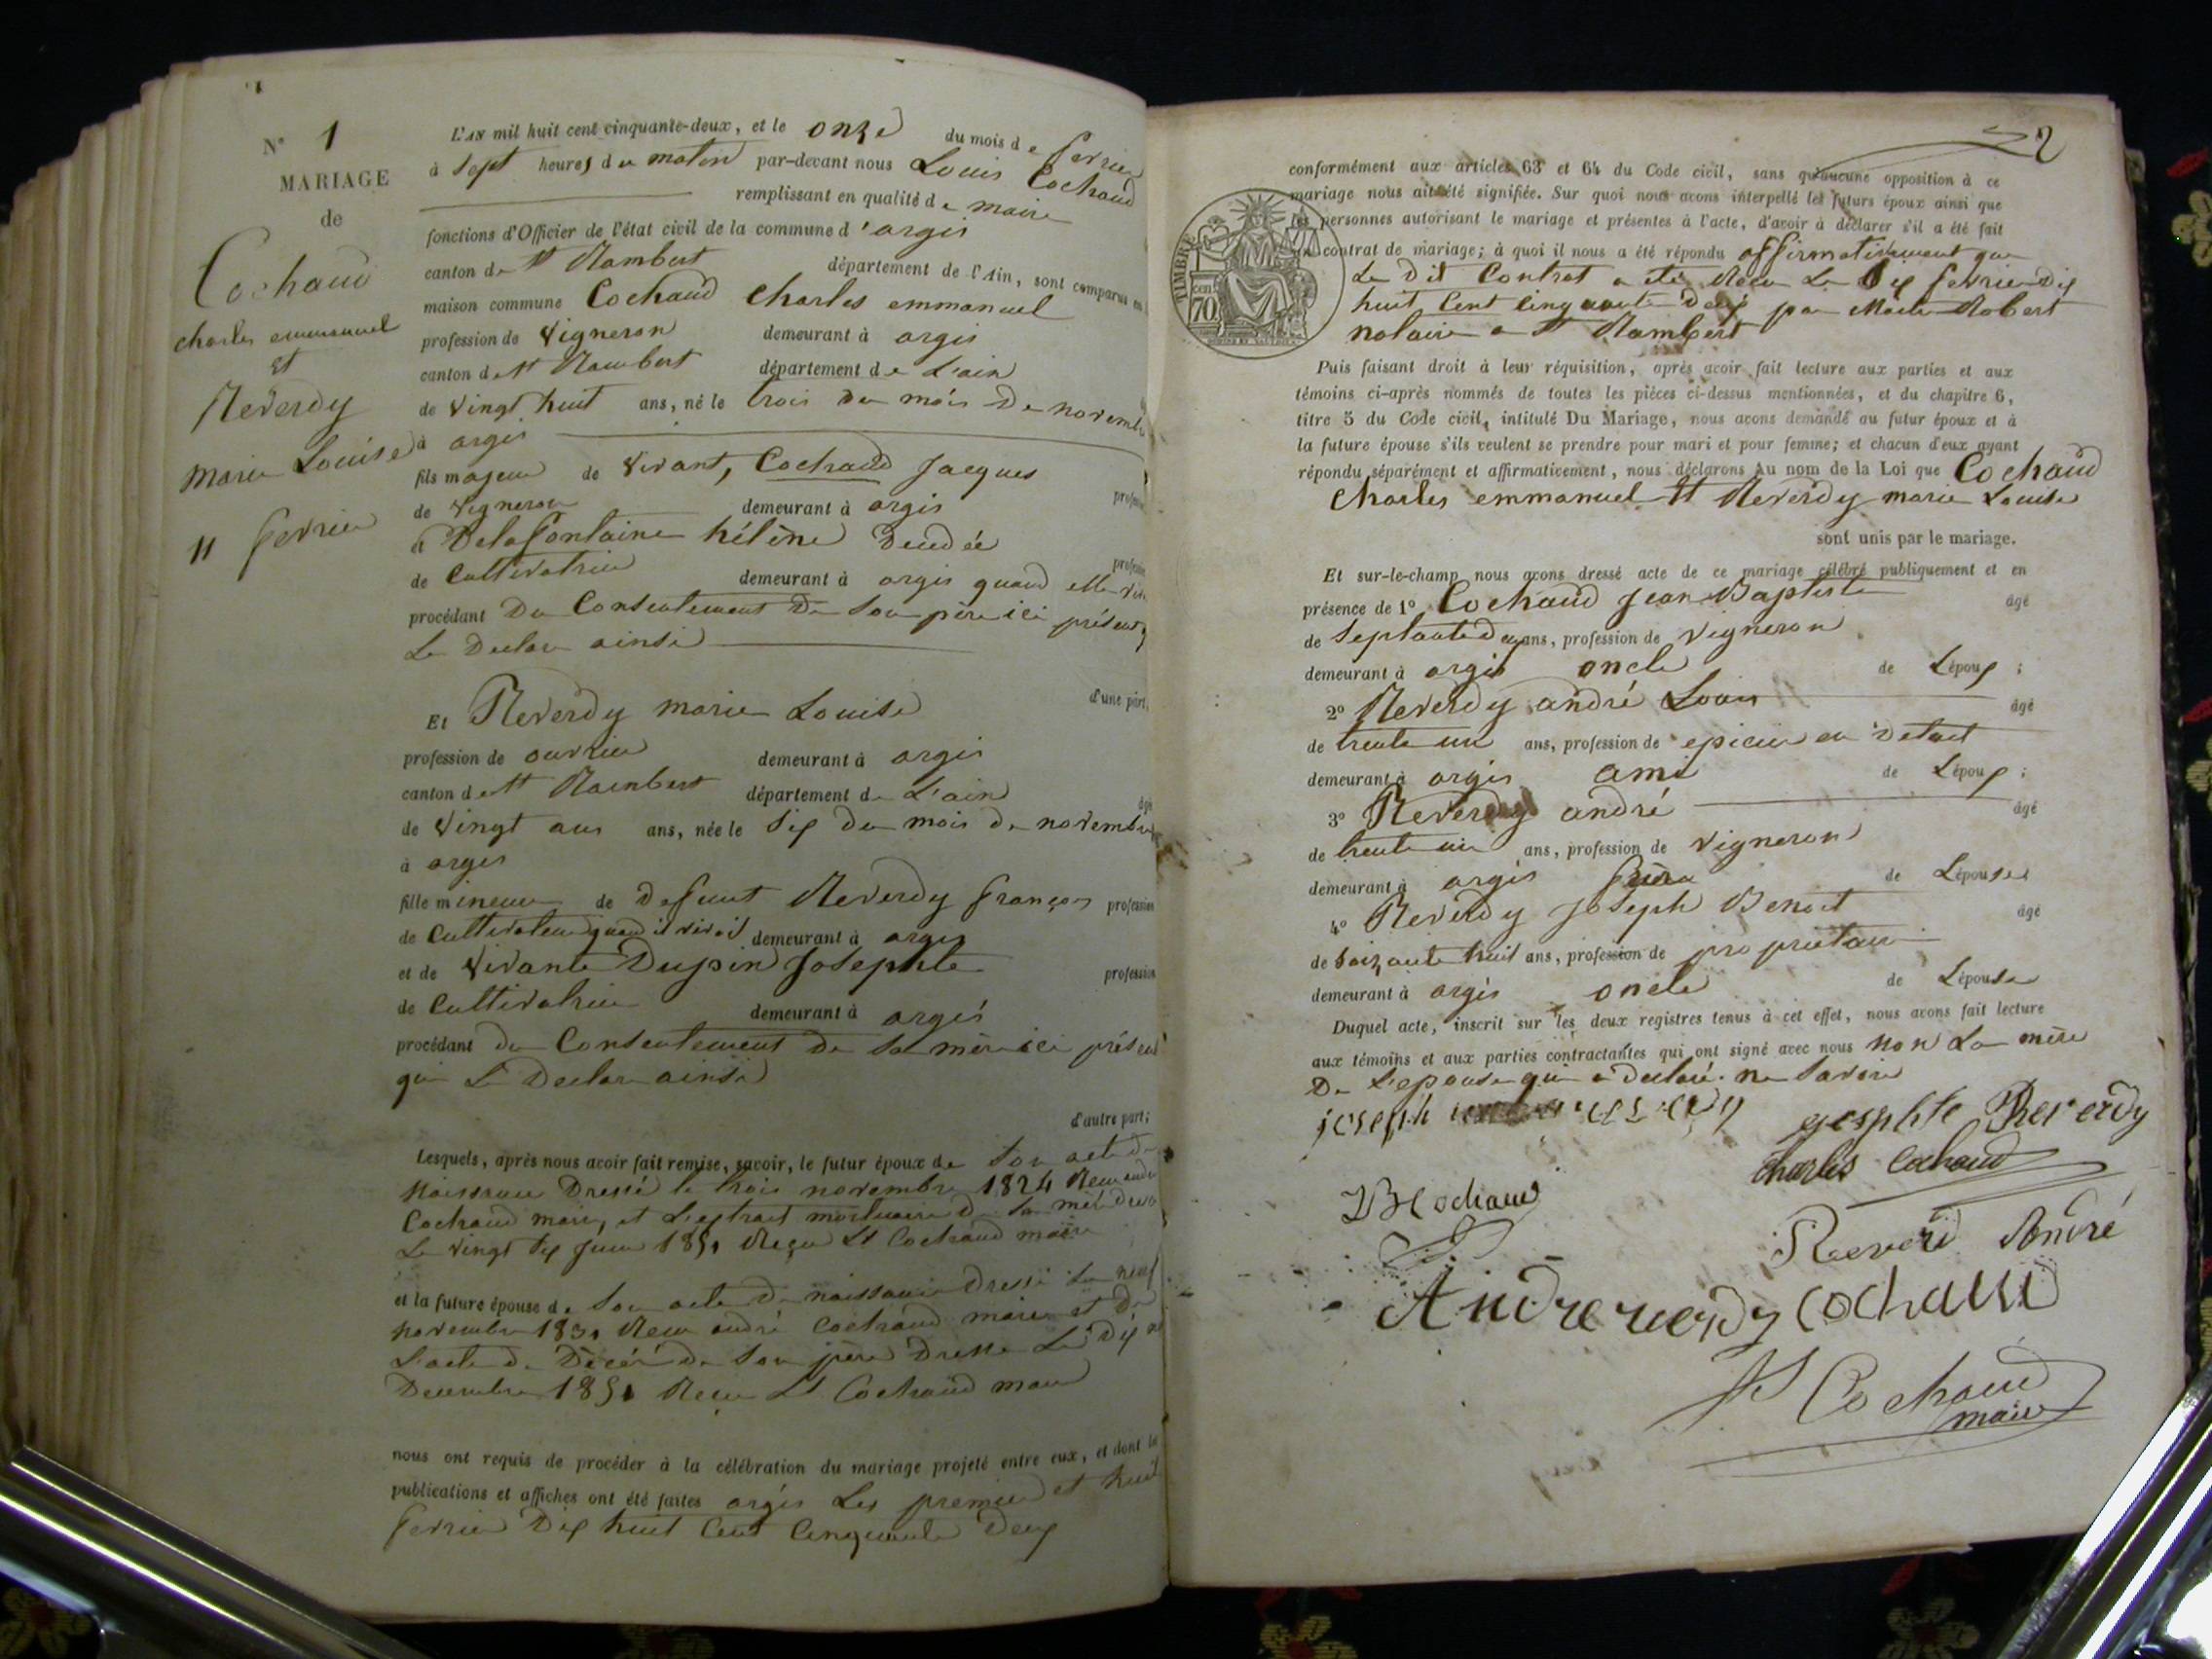 1
N° 1
MARIAGE
de
Cochaud
charles emmanuel
et
Reverdy
marie Louise
11 fevrier
L'AN mil huit cent cinquante-deux, et le onze du mois de fevrier
à sept heures du matin par-devant nous Louis Cochaud
remplissant en qualité de maire
fonctions d'Officier de l'état civil de la commune d'argis
canton de St Rambert département de l'Ain, sont comparus en
maison commune Cochaud charles emmanuel
profession de vigneron demeurant à argis
canton de St Rambert département de L'ain
de vingt huit ans, né le trois du mois de novembre
à argis
fils majeur de vivant, Cochaud Jacques
profession
de vigneron demeurant à argis
et Delafontaine hélène Decedée
profession
de Cultivatrice demeurant à argis quand elle
procédant Du Consentement De Son père ici présent,
Le Declare ainsi
d'une part,
Et Reverdy marie Louise
profession de ouvriere demeurant à argis
canton de St Rambert département de L'ain
âgée
de vingt ans ans, née le six du mois de novembre
à argis
fille mineure de Defunt Reverdy françois profession
de Cultivateur quand il vivoit demeurant à argis
et de vivante Dupin Josephte profession
de Cultivatrice demeurant à argis
procédant du Consentement De Sa mère ici présente
qui Le Declare ainsi
d'autre part;
Lesquels, après nous avoir fait remise, savoir, le futur époux de Son acte de
Naissance Dressé le trois novembre 1824 Recu andré
Cochaud maire, et L'extrait mortuaire De Sa mère
Le vingt six Juin 1851 Reçu Ls Cochaud maire
et la future épouse de Son acte De naissance Dressé Le neuf
novembre 1831 Recu andré Cochaud maire et De
L'acte De Décés De Son père Dressé Le Dix
Decembre 1851 Recu Ls Cochaud maire
nous ont requis de procéder à la célébration du mariage projeté entre eux, et dont les
publications et affiches ont été faites argis Les premier et huit
fevrier Dix huit Cent Cinquante Deux
2
conformément aux articles 63 et 64 du Code civil, sans qu'aucune opposition à ce
mariage nous ait été signifiée. Sur quoi nous avons interpellé les futurs époux ainsi que
les personnes autorisant le mariage et présentes à l'acte, d'avoir à déclarer s'il a été fait
un contrat de mariage; à quoi il nous a été répondu affirmativement que
Le Dit Contrat a été Recu Le Dix fevrier Dix
huit Cent Cinquante Deux par Maitre Robert
notaire a St Rambert
TIMBRE
70 cen
Puis faisant droit à leur réquisition, après avoir fait lecture aux parties et aux
témoins ci-après nommés de toutes les pièces ci-dessus mentionnées, et du chapitre 6,
titre 5 du Code civil, intitulé Du Mariage, nous avons demandé au futur époux et à
la future épouse s'ils veulent se prendre pour mari et pour femme; et chacun d'eux ayant
répondu séparément et affirmativement, nous déclarons Au nom de la Loi que Cochaud
charles emmanuel et Reverdy marie Louise
sont unis par le mariage.
Et sur-le-champ nous avons dressé acte de ce mariage célébré publiquement et en
présence de 1° Cochaud Jean Baptiste âgé
de Septante deux ans, profession de vigneron
demeurant à argis oncle de Lépoux ;
2° Reverdy andré Louis âgé
de trente un ans, profession de epicier en Detail
demeurant à argis ami de Lépoux ;
3° Reverdy andré âgé
de trente un ans, profession de vigneron
demeurant à argis frère de Lépouse
4° Reverdy Joseph Benoit âgé
de Soixante huit ans, profession de proprietaire
demeurant à argis oncle de Lépouse
Duquel acte, inscrit sur les deux registres tenus à cet effet, nous avons fait lecture
aux témoins et aux parties contractantes qui ont signé avec nous non La mère
De L'epouse qui a declaré ne Savoir
joseph Reverdy
charles Cochaud
JB Cochaud
André
Andre reverdy Cochaud
Ls Cochaud
maire